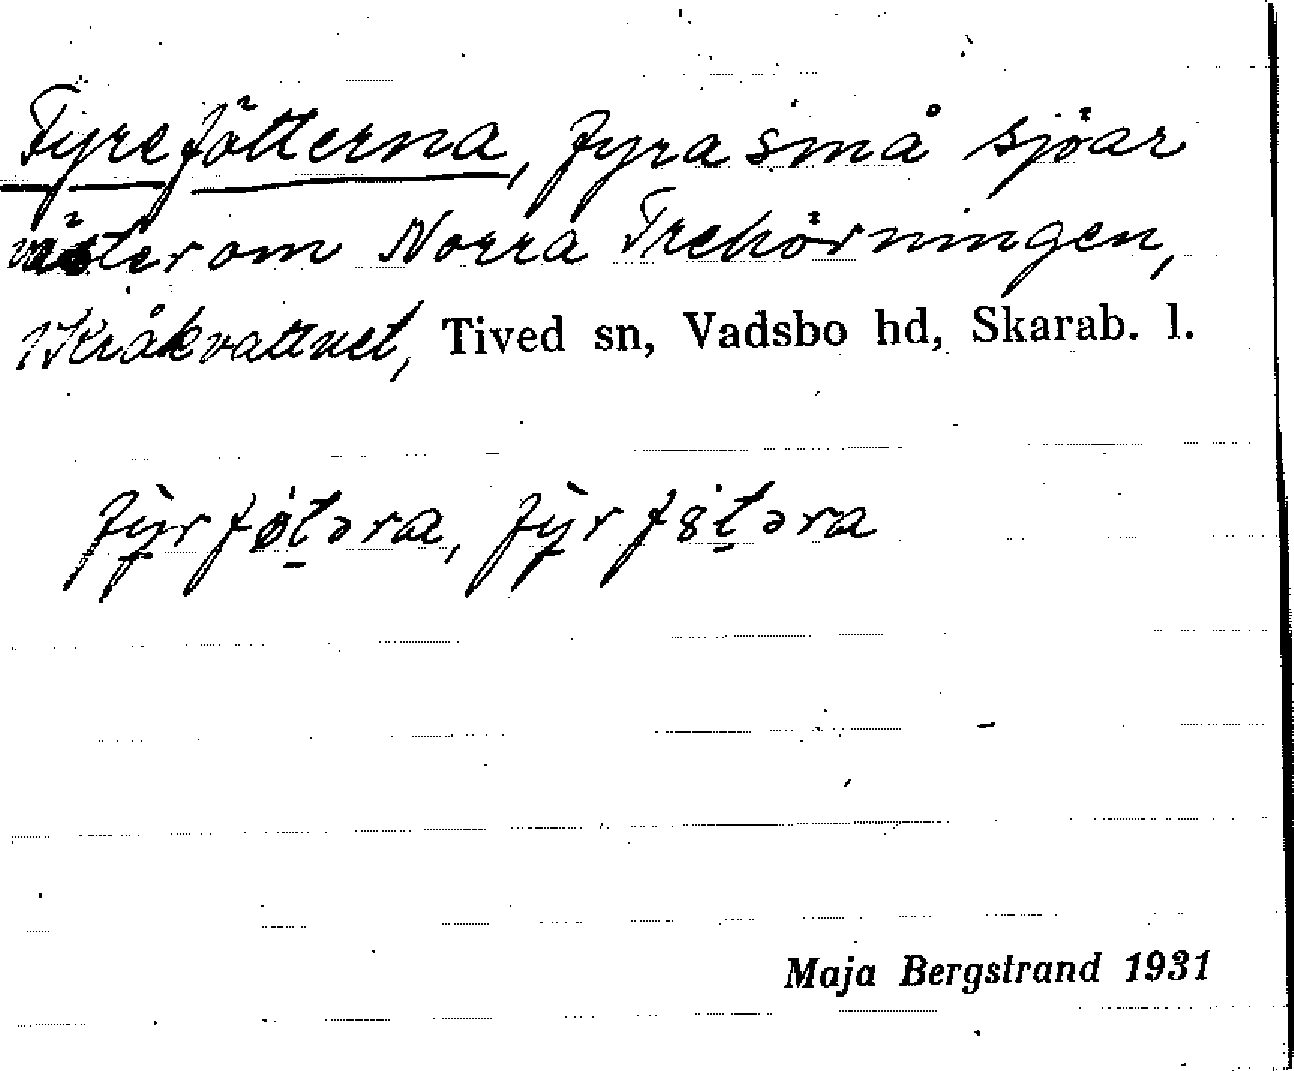 Fyrefötterna, fyra små sjöar
väster om Norra Trehörningen,
Kråkvattnet, Tived sn, Vadsbo hd, Skarab. l.
fỳrføtəra, fỳrf8təra
Maja Bergstrand 1931